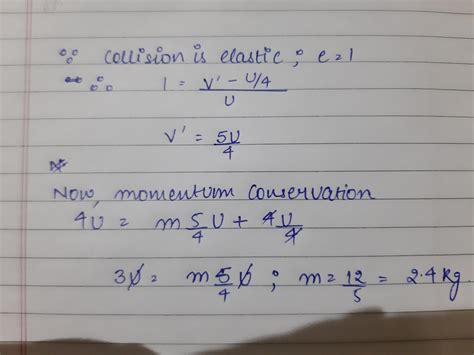 ∵ collision is elastic ; e = 1
∴ 1 = (V' - U/4)/U
V' = 5U/4
Now, momentum conservation
4U = m 5/4 U + 4U/4
3U = m 5/4 U ; m = 12/5 = 2.4 kg.